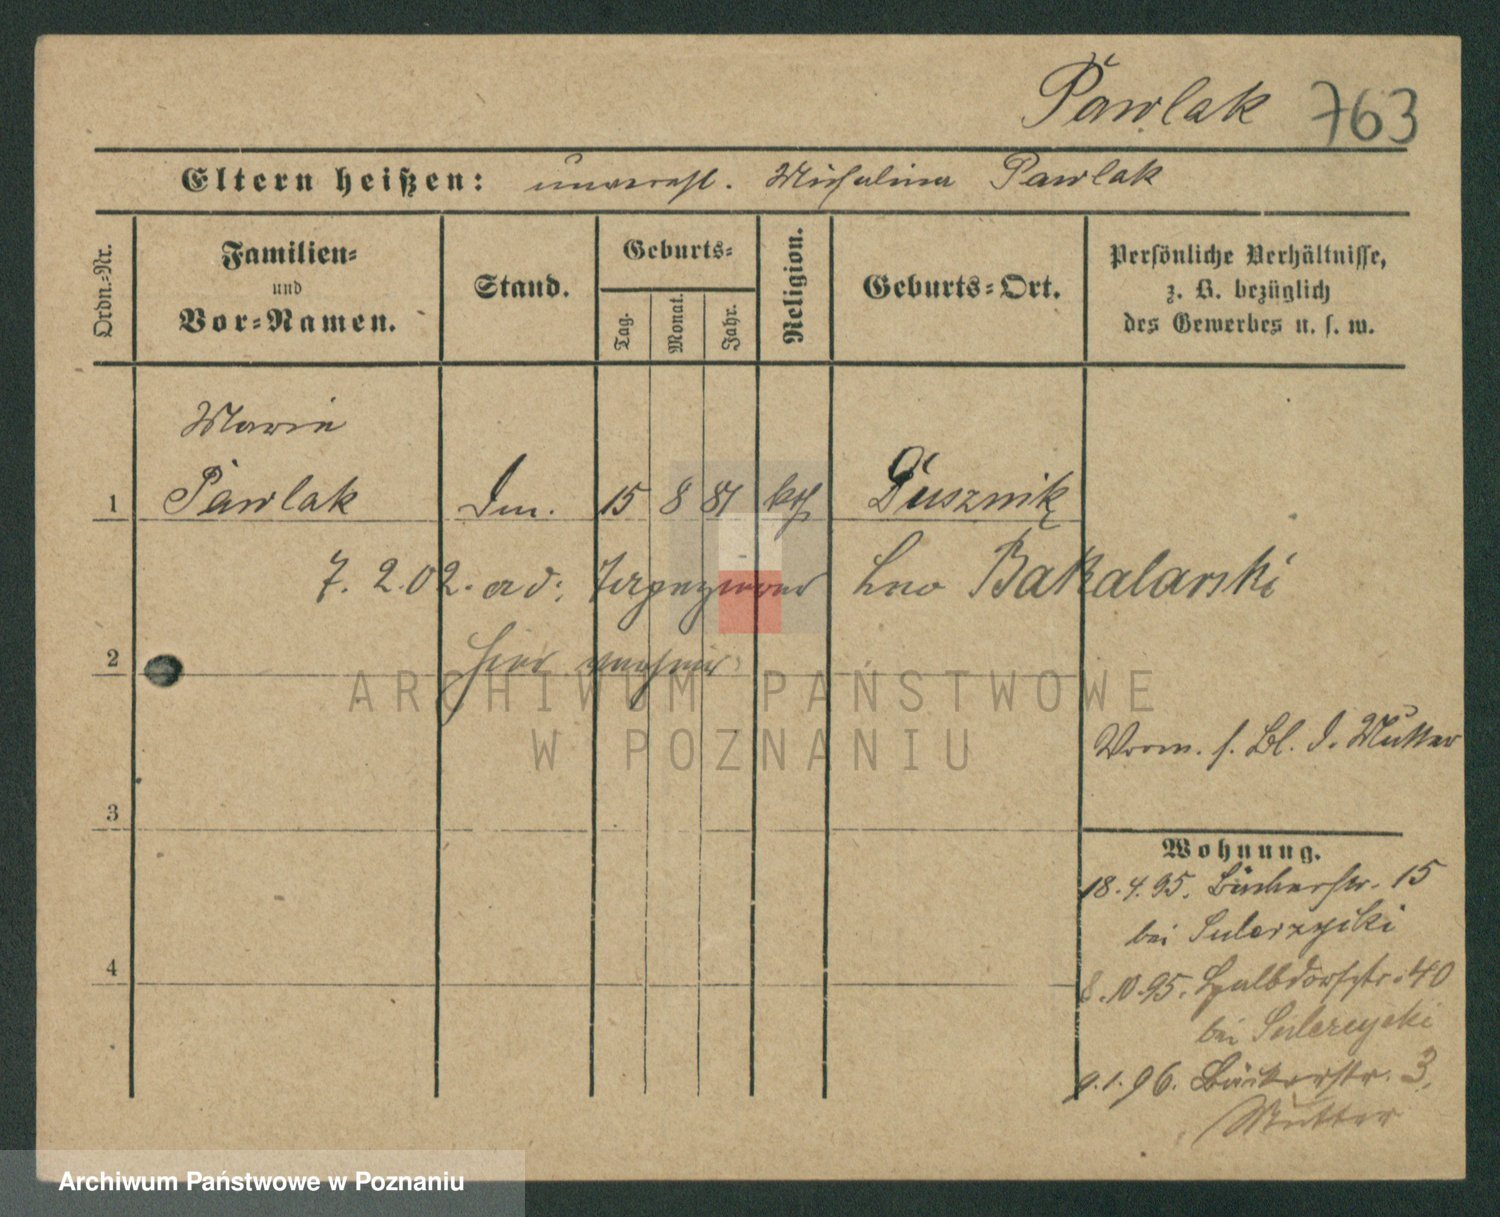 Pawlak 763
Eltern heißen: unvereh. Michalina Pawlak
Ordn.=Nr.
Familien=
und
Vor=Namen.
Stand.
Geburts=
Tag.
Monat.
Jahr.
Religion.
Geburts=Ort.
Persönliche Verhältnisse,
z. B. bezüglich
des Gewerbes u. s. w.
Marie
1 Pawlak 15 8 81 kth Dusznik
7. 2. 02. ad: Tapezierer Leo Bakalarski
2 hier
ARCHIWUM PAŃSTWOWE
W POZNANIU
Vorm. s. Bl. d. Mutter
3
Wohnung.
18. 4. 95. Bäckerstr. 15
bei
4
8. 10. 95. Halbdorfstr. 40
bei
9. 1. 96. Bäckerstr. 3,
Mutter
Archiwum Państwowe w Poznaniu